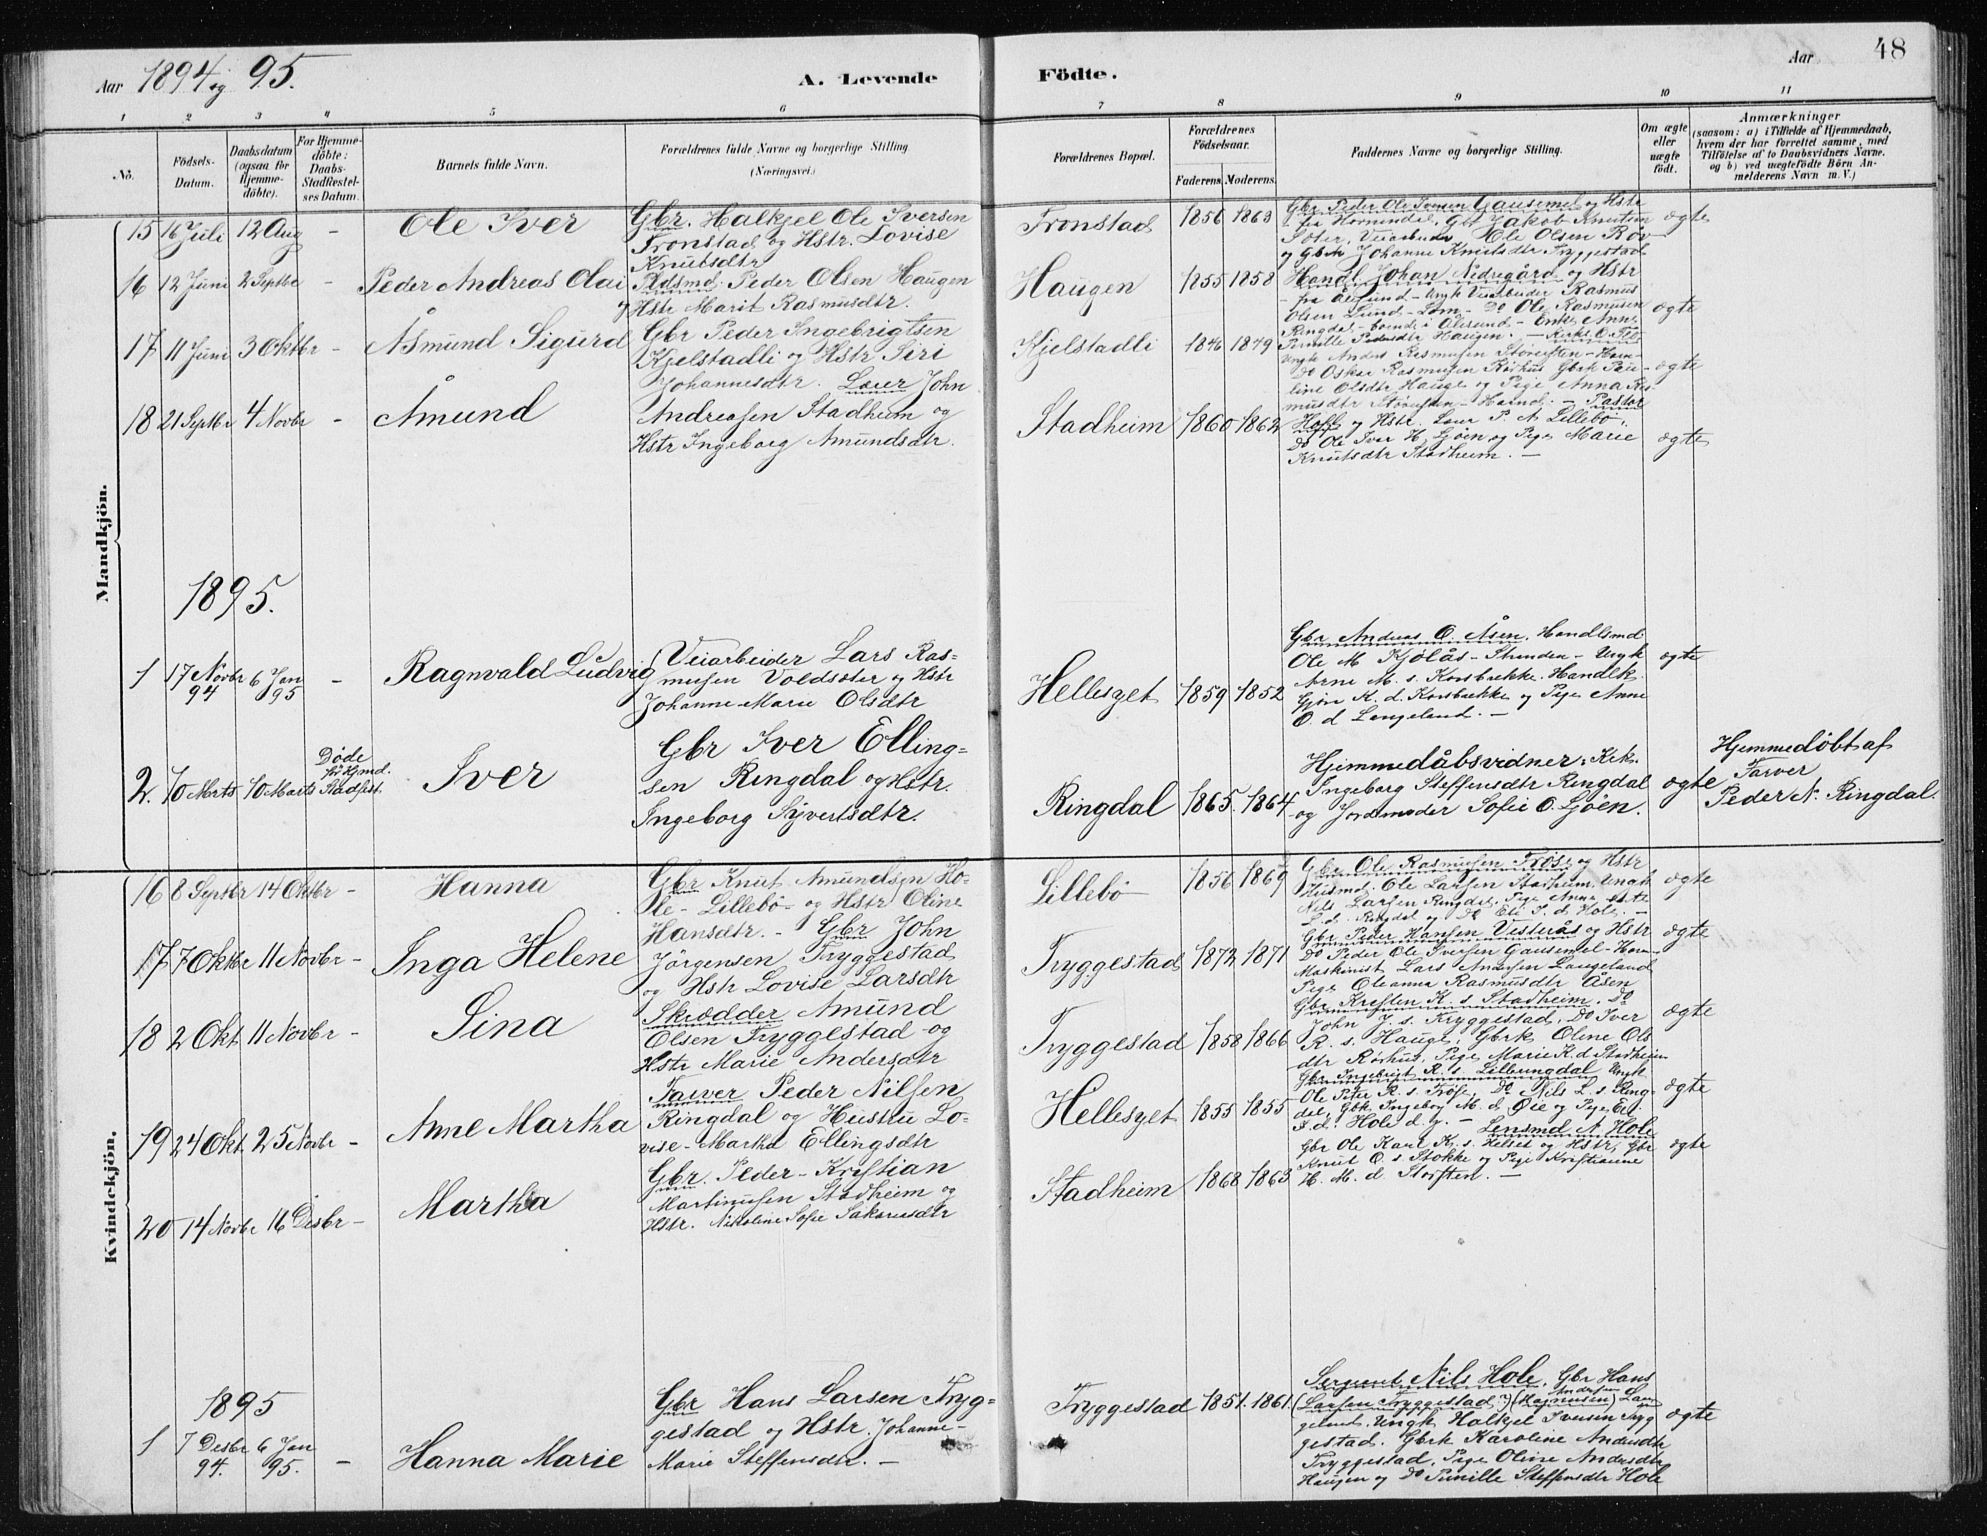 Aar 1894 og 95.
A. Levende Födte.
Aar 48
1 2 3 4 5 6 7 8 9 10 11
No.
Födsels-Datum.
Daabsdatum (ogsaa for Hjemmedöbte).
For Hjemmedöbte: Daabs-Stadfæstelses Datum.
Barnets fulde Navn.
Forældrenes fulde Navne og borgerlige Stilling (Næringsvei.)
Forældrenes Bopæl.
Forældrenes Födselsaar.
Faderens. Moderens.
Faddernes Navne og borgerlige Stilling.
Om ægte eller uægte födt.
Anmærkninger
(saasom: a) i Tilfælde af Hjemmedaab, hvem der har forrettet samme, med Tilföielse af to Daabsvidners Navne. og b) ved uægtefödte Börn Anmelderens Navn m. V.)
Mandkjön.
15 16 Juli 12 Aug - Ole Iver
Gbr. Halkjel Ole Iversen
Tronstad og Hstr. Lovise
Knutsdtr
Tronstad 1856 1863
Gbr Peder Ole Iversen Gausemel og Hstr
fra Hornindal, Gbr Jakob Knutsen
Sæter, Veiarbeider Ole Olsen Röv
og Gbrk Johanne Knutsdtr Tryggestad
ægte
16 12 Juni 2 Septbr - Peder Andreas Olai
Pldsmd. Peder Olsen Haugen
og Hstr Marit Rasmusdtr.
Haugen 1855 1858
Handl. Johan Nedregård og Hstr
- fra Ålesund - Ungk Veiarbeider Rasmus
Olsen Lund - Lom - Do Ole Rasmusen
Ringdal - boende i Ålesund - Enke Anne
Pernille Pedersdtr Haugen. -
ægte
17 11 Juni 3 Oktbr - Åsmund Sigurd
Gbr Peder Ingebrigtsen
Kjelstadli og Hstr Siri
Johannesdtr.
Kjelstadli 1846 1849
Ungk Anders Rasmusen Storeften - Horn-
Do Oskar Rasmusen Rörhus Gbrk Pau-
line Olsdtr Hauge og Pige Anna Ras-
musdtr Störeften - Hornd. -
ægte
18 21 Septbr 4 Novbr - Åmund
Lærer John
Andreasen Stadheim og
Hstr Ingeborg Amundsdtr.
Stadheim 1860 1862
Pastor
Hoff og Hstr. Lærer P. N. Lillebö,
Do Ole Iver H. Ljöen og Pige Marie
Knutsdtr Stadheim. -
ægte
1895.
1 17 Novbr 94 6 Jan 95 - Ragnvald Ludvig
Veiarbeider Lars Ras-
musen Voldsæter og Hstr
Johanne Marie Olsdtr
Hellesyet 1859 1852
Gbr Andreas O. Åsen, Handlsmd
Ole M Kjölås - Stranden - Ungk
Arne M. s. Korsbrække. Handlk.
Gjöre K. d. Korsbrække og Pige Anne
O. d Langeland. -
ægte
2. 10 Marts 10 Marts Döde för Hjmd. Stadfæst. Iver
Gbr Iver Elling-
sen Ringdal og Hstr.
Ingeborg Syvertsdtr.
Ringdal 1865. 1864
Hjemmedåbsvidner: Kirk.
Ingeborg Steffensdtr Ringdal
og Jordmoder Sofie O. Ljöen.
ægte
Hjemmedöbt af
Farver
Peder N. Ringdal.
Kvindekjön.
16 8 Septbr 14 Oktbr - Hanna
Gbr Knut Amundsen Ho-
le - Lillebö - og Hstr Oline
Hansdtr. -
Lillebö 1856 1869
Gbr Ole Rasmusen Tröse og Hstr
Husmd. Ole Larsen Stadheim, Ungk
Nils Larsen Ringdal, Pige Anne
L. d. Ringdal og Do Eli I. d. Hole. -
ægte
17 7 Oktbr 11 Novbr - Inga Helene
Gbr John
Jörgensen Tryggestad
og Hstr Lovise Larsdtr
Tryggestad 1872 1871
Gbr Peder Hansen Vesterås og Hstr
Do Peder Ole Iversen Gausemel - Horn-
Maskinist Lars Andersen Langeland
Pige Oleanna Rasmusdtr Åsen
ægte
18 2 Okt 11 Novbr - Sina
Skrædder Amund
Olsen Tryggestad og
Hstr Marie Andersdtr
Tryggestad 1858 1866
Gbr Kresten K. s. Stadheim, Do
John J. s. Tryggestad, Do Iver
R. s. Hauge, Gbrk Oline Ols
dtr Rörhus, Pige Marie K. d Stadheim
ægte
19 24 Okt. 25 Novbr - Anne Martha
Farver Peder Nilsen
Ringdal og Hustru Lo-
vise - Martha Ellingsdtr
Hellesyet 1855 1855
Gbr Ingebrigt R. s. Lillungdal Ungk
Ole Peter R. s. Tröse, Do Nils L. s Ring-
dal, Gbk Ingeborg M. d Öie og Pige Eli
I. d. Hole d. y. -
ægte
20 14 Novbr 16 Desbr - Martha
Gbr. Peder - Kristian
Martinusen Stadheim og
Hstr. Nikoline Sofie Sakariasdtr
Stadheim 1868 1863
Lensmd N. Hole
Gbr Ole Karl K. s. Helset og Hstr, Gbr
Knut O. s Stokke og Pige Kristianne
H. M. d. Storften. -
ægte
1895
1 7 Desbr 94. 6 Jan 95. - Hanna Marie
Gbr Hans Larsen Tryg-
gestad og Hstr. Johanne -
Marie Steffensdtr. -
Tryggestad 1851. 1861.
Sergeant Nils Hole, Gbr Hans
(Larsen Tryggestad?) (Rasmusen) Andersen Lan-
geland, Ungk Halkjel Iversen Tryg
gestad. Gbrk Karoline Andersdtr
Tryggestad, Pige Oline Andersdtr
Haugen og Do Pernille Steffensdtr Hole
ægte